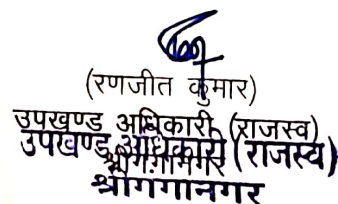 (रणजीत कुमार)
उपखण्ड अधिकारी (राजस्व)
उपखण्ड अधिकारी (राजस्व)
श्रीगंगानगर
श्रीगंगानगर